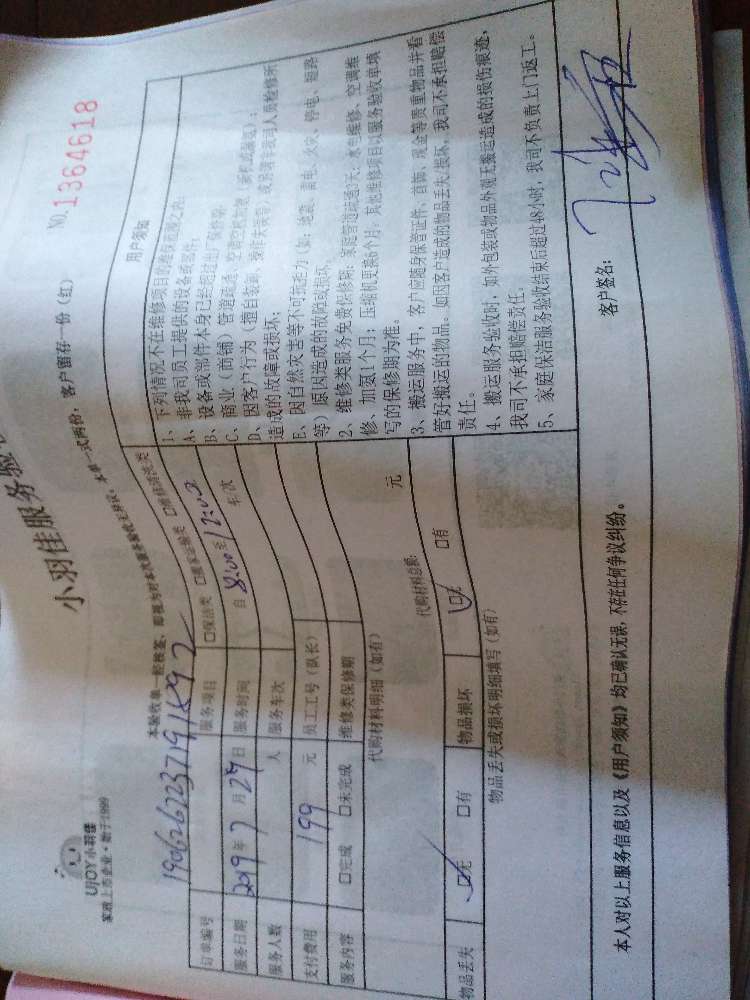 UJOY小羽佳
家政上市企业·始于1999
小羽佳服务验
NO. 1364618
本单一式两份，客户留存一份（红）
订单编号
服务项目 □保洁类 □搬家运输类 □维修清洗类
服务日期 2019年7月27日 服务时间 自 8:00 至 12:00
服务人数 人 服务车次 车/次
支付费用 199 元 员工工号（队长）
服务内容 □完成 □未完成 维修类保修期
代购材料明细（如有）
代购材料总额： 元
物品丢失 □无 □有 物品损坏 □无 □有
物品丢失或损坏明细填写（如有）
用户须知
1、下列情况不在维修项目的维保范围之内：
A、非我司员工提供的设备或部件；
B、设备或部件本身已经超过出厂保修期；
C、商业（商铺）管道疏通、
D、因客户行为（擅自移动、操作失误等）、或者请非我司人员检修所
造成的故障或损坏；
E、因自然灾害等不可抗拒力（如：地震、雷电、火灾、停电、短路
等）原因造成的故障或损坏。
2、维修类服务免费保修期：家庭管道疏通3天、水电维修、空调维
修、加氨1个月；压缩机更换6个月，其他维修项目以服务验收单填
写的保修期为准。
3、搬运服务中，客户应随身保管证件、首饰、现金等贵重物品并看
管好搬运的物品。如因客户造成的物品丢失/损坏，我司不承担赔偿
责任。
4、搬运服务验收时，如外包装或物品外观无搬运造成的损伤痕迹，
我司不承担赔偿责任。
5、家庭保洁服务验收结束后超过48小时，我司不负责上门返工。
本人对以上服务信息以及《用户须知》均已确认无误，不存在任何争议纠纷。
客户签名：